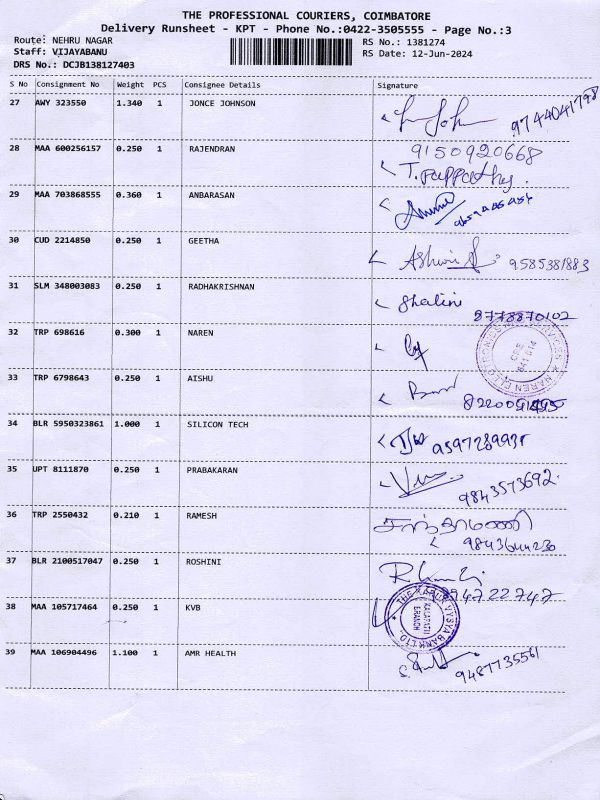 THE PROFESSIONAL COURIERS, COIMBATORE
Delivery Runsheet - KPT - Phone No.:0422-3505555 - Page No.:3
Route: NEHRU NAGAR
RS No.: 1381274
Staff: VIJAYABANU
RS Date: 12-Jun-2024
DRS No.: DCJB138127403
S No Consignment No Weight PCS Consignee Details Signature
27 AWY 323550 1.340 1 JONCE JOHNSON
9744041798
28 MAA 600256157 0.250 1 RAJENDRAN 9150920668
29 MAA 703868555 0.360 1 ANBARASAN
30 CUD 2214850 0.250 1 GEETHA
9585381883
31 SLM 348003083 0.250 1 RADHAKRISHNAN
Shalini
8778870102
32 TRP 698616 0.300 1 NAREN
33 TRP 6798643 0.250 1 AISHU
34 BLR 5950323861 1.000 1 SILICON TECH
35 UPT 8111870 0.250 1 PRABAKARAN
9843573692
36 TRP 2550432 0.210 1 RAMESH
சாந்தாமணி
9843644230
37 BLR 2100517047 0.250 1 ROSHINI
38 MAA 105717464 0.250 1 KVB
THE KARUR VYSYA BANK LTD.
KALAPATTI
BRANCH
39 MAA 106904496 1.100 1 AMR HEALTH
9487735561